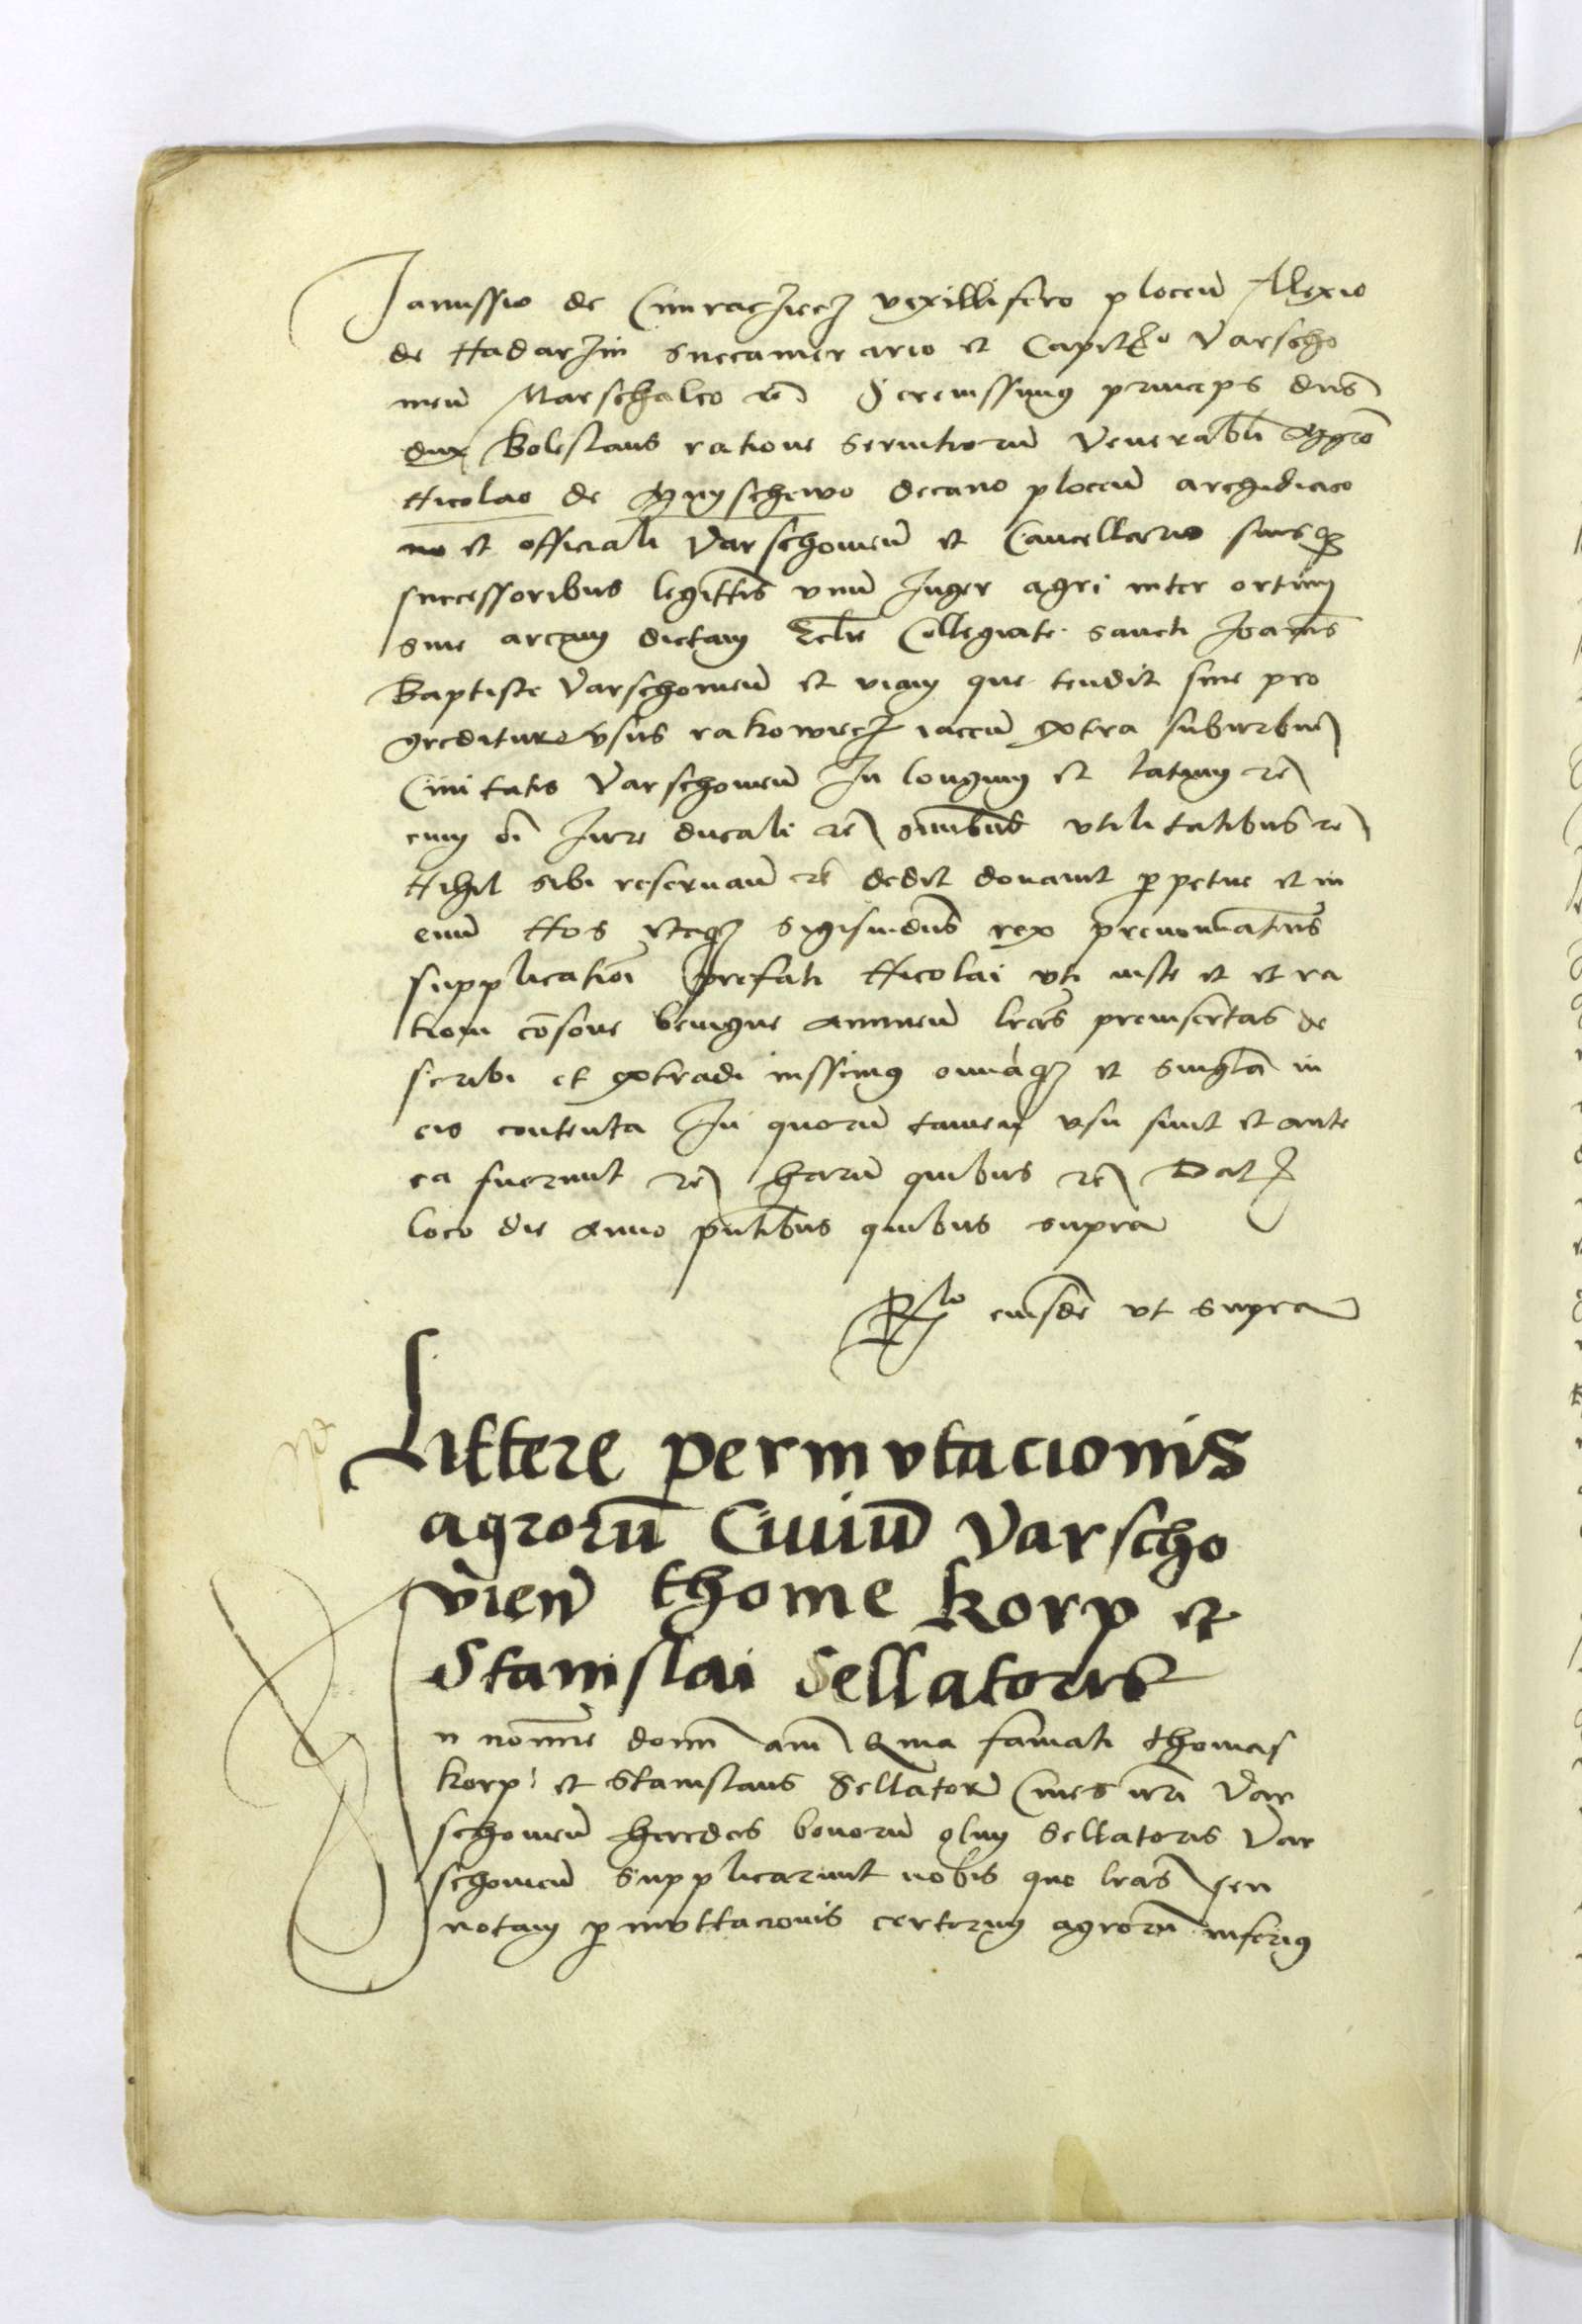 Janussio de Cunracziecz vexillifero plocen̄ Alexio
de Nadarzin succamerario et Capit͠eo Varscho
uien̄ Marschalco rē Serenissimus princeps dn̄s
dux Boleslaus ratione seruitiorū Venerabili Mgrō
Nicolao de Mnyschewo decano plocen̄ archidiaco
no et officiali Varschouien̄ et Cancellario suisqȝ
successoribus legittis vnū Juger agri inter ortum
siue aream dictam Ecclīe Collegiate sancti Joānis
Baptiste Varschouien̄ et viam que tendit siue pro
greditur vsus rakowiecz iacen̄ extra suburbiū
Ciuitatis Varschouien̄ In longum et latum rē
cum oī Jure ducali rē omnibus vtilitatibus rē
Nihil sibi reseruan̄ rē dedit donauit perpetue et in
euū Nos itaqȝ Sigismdūs rex prenominatus
supplicationi prefati Nicolai vti iuste et et ra
tioni cōsone benigne annuen̄ lrās preinsertas de
scribi et extradi iussimus omniaqȝ et singla in
eis contenta In quorū tamen vsu sunt et ante
ea fuerunt rē harū quibus rē Dat
loco die anno pn̄tibus quibus supra
Rlo eiusdē vt supra
Littere permvtacionis
agrorū Ciuiū Varscho
vien̄ thome korp et
Stanislai Sellatoris
In nomine domī amē Quia famati thomas
korp et Stanislaus Sellator Ciues nrī Var
schouien̄ heredes bonorū olim Sellatoris Var
schouien̄ supplicarunt nobis quo lrās seu
notam permvttacionis certorum agrorū inferius